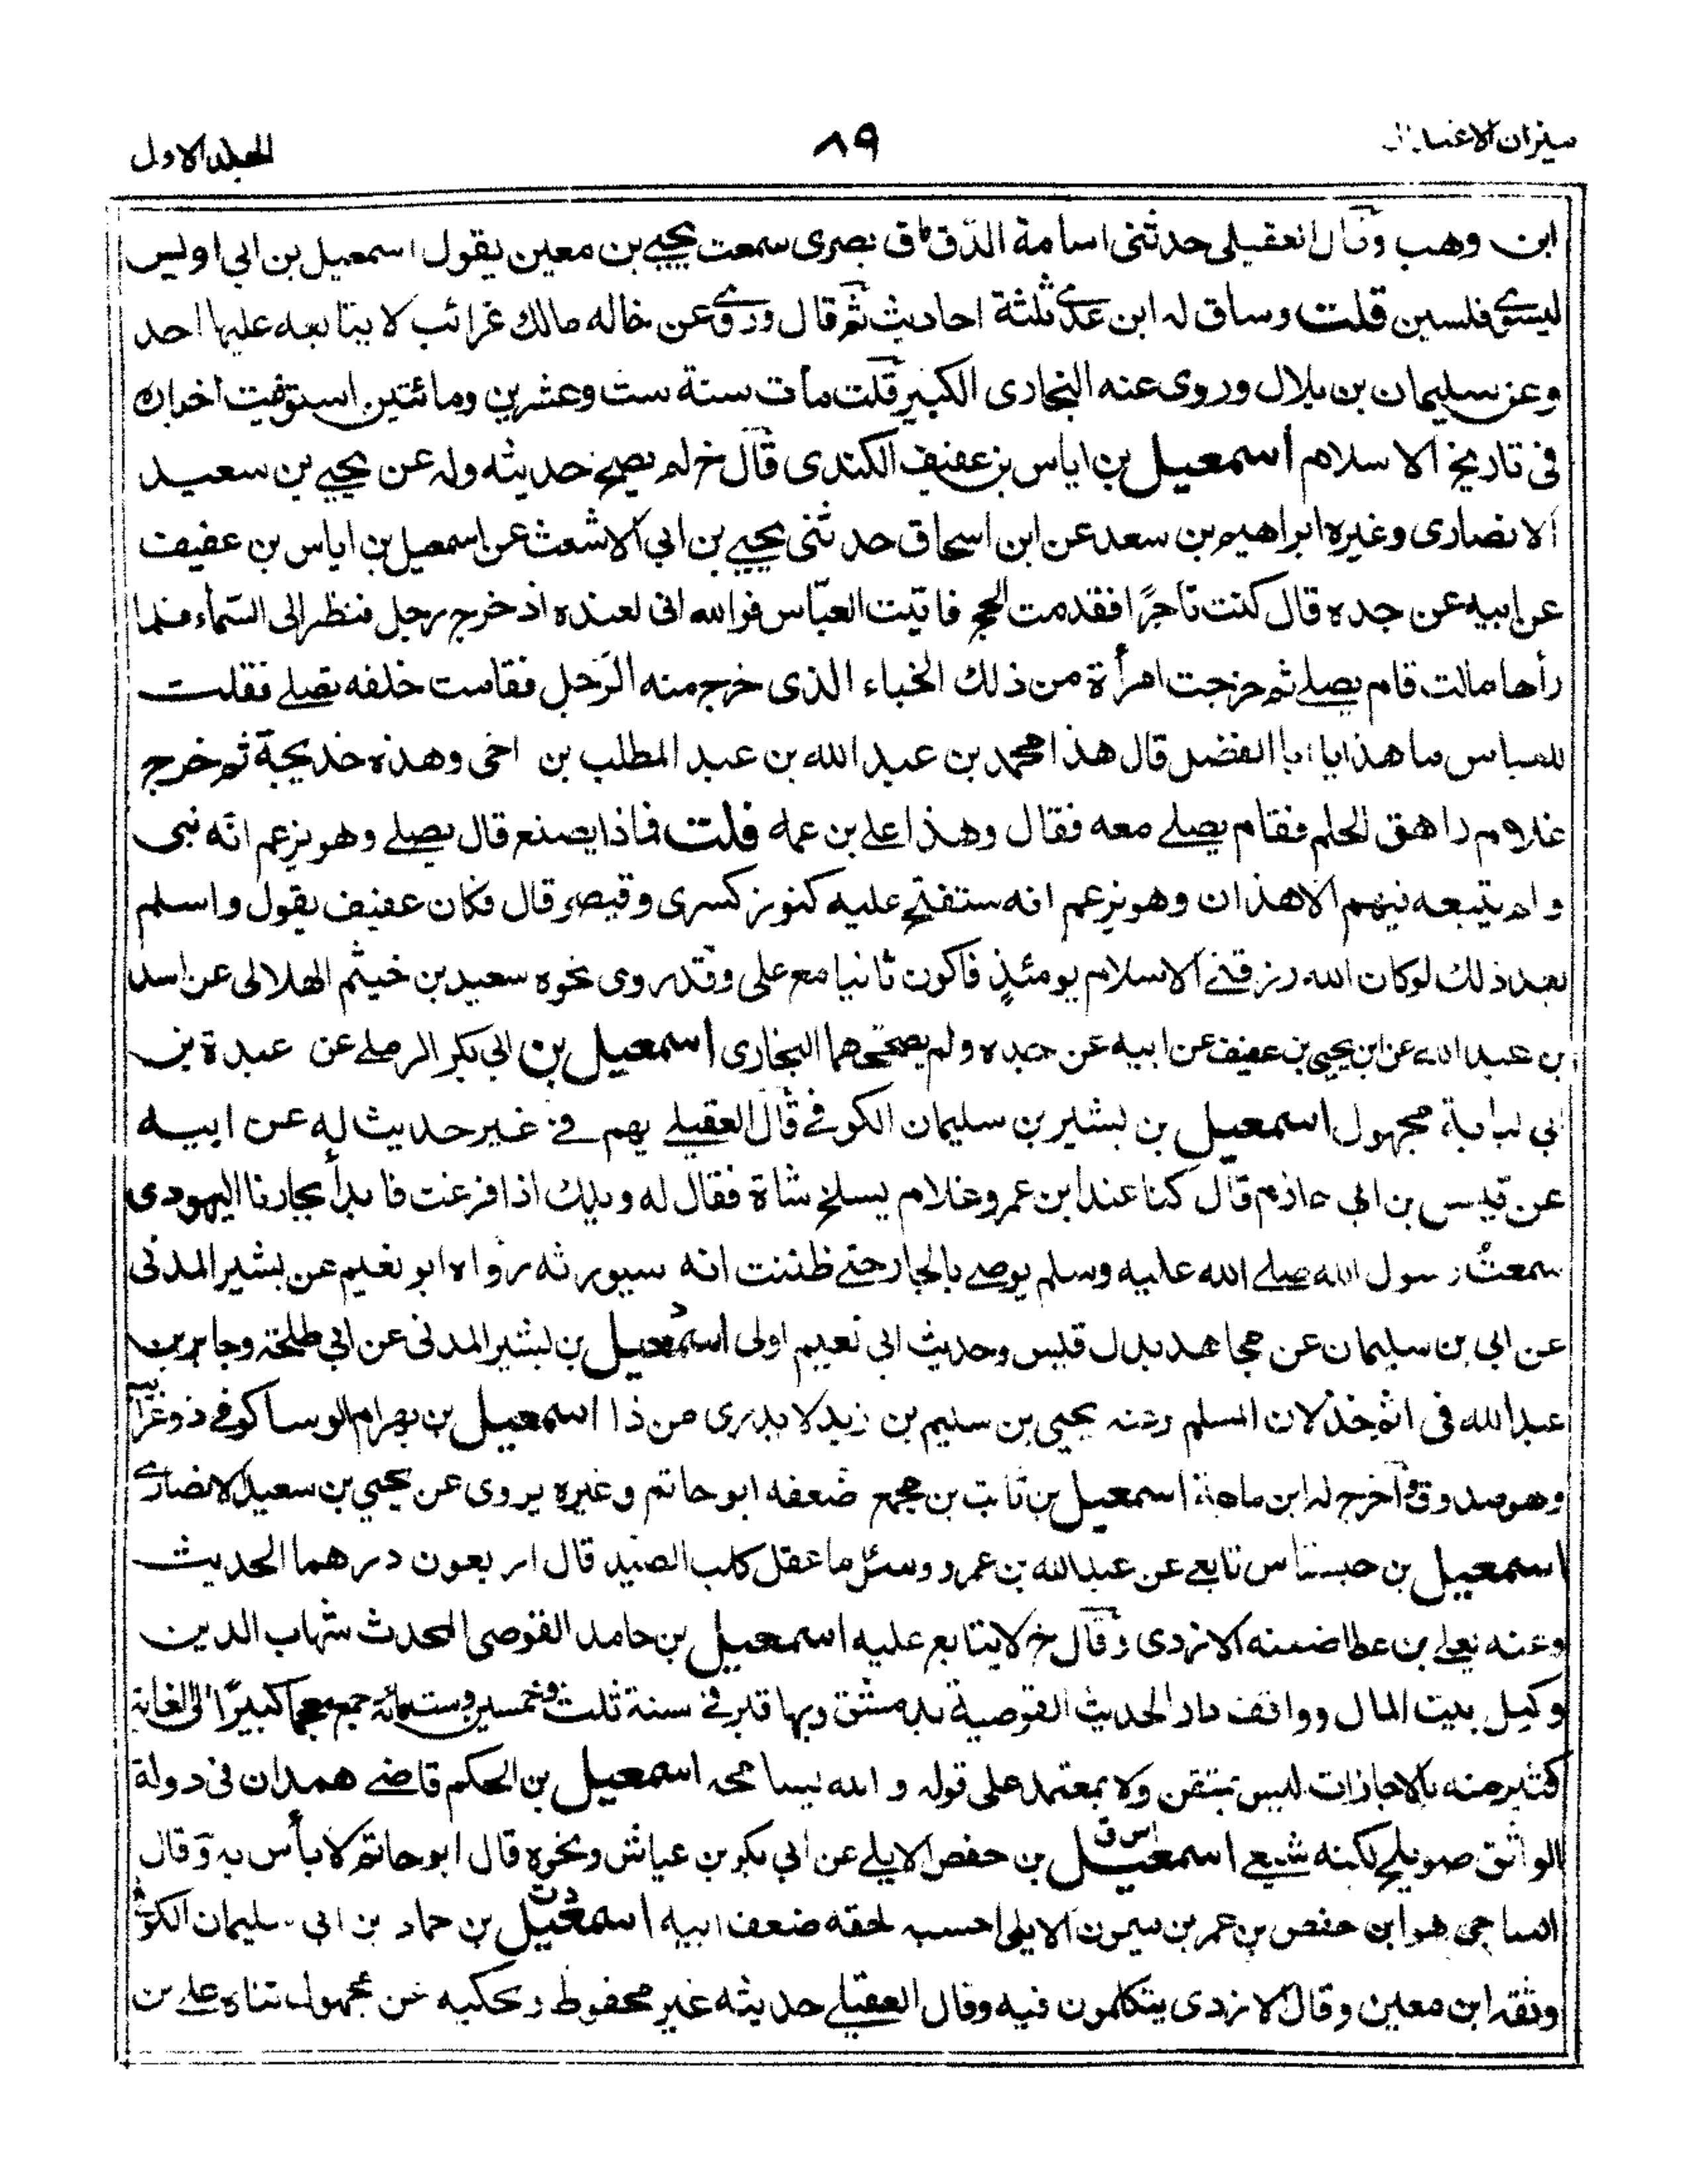 ميزان الاعتدال
٨٩
المجلد الاول
ابن وهب وقال العقيلى حدثنى اسامة الدقاق بصرى سمعت يحيى بن معين يقول اسمعيل بن ابى اويس
ليسوى فلسين قلت وساق له ابن عدى ثلثة احاديث ثم قال وروى عن خاله مالك غرائب لا يتابعه عليها احد
وعن سليمان بن بلال وروى عنه البخارى الكبير قلت مات سنة ست وعشرين ومائتين استوفيت اخباره
فى تاريخ الاسلام اسمعيل بن اياس بن عفيف الكندى قال خ لم يصح حديثه وله عن يحيى بن سعيد
الانصارى وغيره ابراهيم بن سعد عن ابن اسحاق حدثنى يحيى بن ابى الاشعث عن اسمعيل بن اياس بن عفيف
عن ابيه عن جده قال كنت تاجرًا فقدمت الحج فاتيت العبّاس فوالله انى لعنده اذ خرج رجل فنظر الى السّماء فلما
رأها مالت قام يصلى ثم خرجت امرأة من ذلك الخباء الذى خرج منه الرّجل فقامت خلفه تصلى فقلت
للعباس ما هذا يا ابا الفضل قال هذا محمد بن عبد الله بن عبد المطلب بن اخى وهذه خديجة ثم خرج
غلام راهق الحلم فقام يصلى معه فقال وهذا على بن عمه قلت فماذا يصنع قال يصلى وهو يزعم انّه نبى
ولم يتبعه فيهم الا هذان وهو يزعم انه ستفتح عليه كنوز كسرى وقيصر قال فكان عفيف يقول واسلم
بعد ذلك لو كان الله رزقنى الاسلام يومئذٍ فاكون ثانيا مع على وقد روى نحوه سعيد بن خيثم الهلالى عن اسد
بن عبد الله عن ابن يحيى بن عفيف عن ابيه عن جده ولم يصححهما البخارى اسمعيل بن ابى بكر الرملى عن عبدة بن
ابى لبابة مجهول اسمعيل بن بشير بن سليمان الكوفى قال العقيلى يهم فى غير حديث له عن ابيه
عن قيس بن ابى حازم قال كنا عند ابن عمر وغلام يسلخ شاة فقال له ويلك اذا فرغت فابدأ بجارنا اليهودى
سمعتُ رسول الله صلى الله عليه وسلم يوصى بالجار حتى ظننت انه سيورثه رواه ابو نعيم عن بشير المدنى
عن ابى بن سليمان عن مجاهد بدل قيس وحديث ابى نعيم اولى اسمعيل د بن بشير المدنى عن ابى طلحة وجابر بن
عبد الله فى اثم خذلان المسلم وعنه يحيى بن سليم بن زيد لا يدرى من ذا اسمعيل بن بهرام الوسا كوفى ذو غرائب
وهو صدوق واخرج له ابن ماجة اسمعيل بن ثابت بن مجمع ضعفه ابو حاتم وغيره يروى عن يحيى بن سعيد الانصارى
اسمعيل بن حبستاس تابعى عن عبد الله بن عمرو وسئل ما عقل كلب الصيد قال اربعون درهما الحديث
وعنه يعلى بن عطا ضعفه الازدى وقال خ لا يتابع عليه اسمعيل بن حامد القوصى المحدث شهاب الدين
وكيل بيت المال وواقف دار الحديث القوصية بدمشق وبها قبر فى سنة ثلث وخمسين وستمائة جمع معجما كبيرًا الى الغاية
كثير منه بالاجازات ليس بمتقن ولا بمعتمد على قوله والله يسامحه اسمعيل بن الحكم قاضى همدان فى دولة
الواثق صويلح لكنه شيعى اسمعيل س ق بن حفص الايلى عن ابى بكر بن عياش ونحوه قال ابو حاتم لا بأس به وقال
الساجى هو ابن حفص بن عمر بن ميمون الايلى احسبه لحقه ضعف ابيه اسمعيل د ت بن حماد بن ابى سليمان الكوفى
وثقه ابن معين وقال الازدى يتكلمون فيه وقال العقيلى حديثه غير محفوظ ويحكيه عن مجهول ثناه على بن